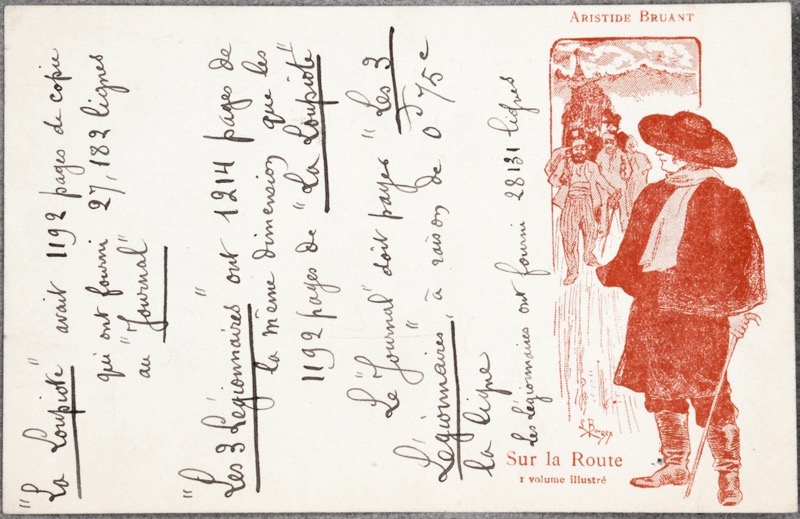 ARISTIDE BRUANT
"La Loupiote" avait 1192 pages de copie
qui ont fourni 27,182 lignes
au "Journal"
"Les 3 Légionnaires" ont 1214 pages de
la même dimension que les
1192 pages de "La Loupiote"
Le "Journal" doit payer "Les 3
Légionnaires" à raison de 0f75c
la ligne
Les Légionnaires ont fourni 28131 lignes
Sur la Route
1 volume illustré